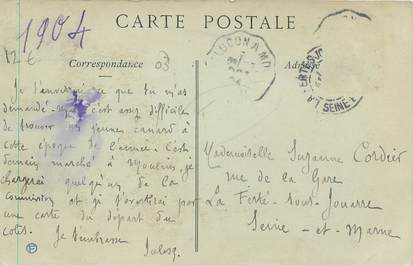 CARTE POSTALE
1904
12 €
Correspondance
03
Je t'enverrai ce que tu m'as
demandé c'est assez difficile
de trouver un jeune canard à
cette époque de l'année. C'est
demain marché à Moulins, je
chargerai quelqu'un de la
commission et je t'avertirai par
une carte du départ du
colis. Je t'embrasse
Mademoiselle Suzanne Cordier
rue de la Gare
La Ferté-sous-Jouarre
Seine-et-Marne